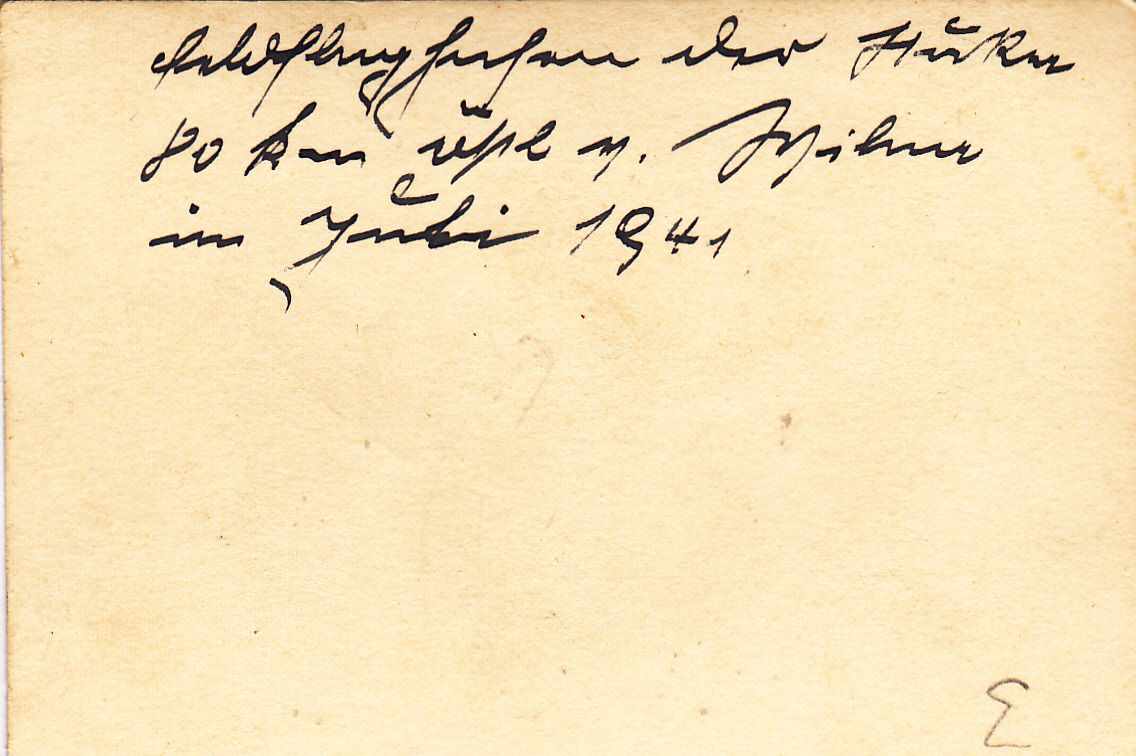 Feldflughafen der Stukas
80 km östl v. Wilna
im Juli 1941
E